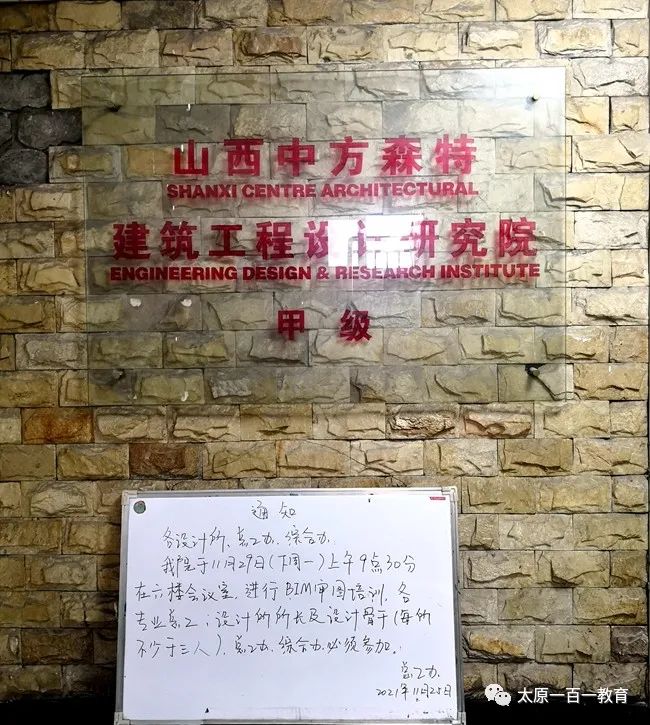 山西中方森特
SHANXI CENTRE ARCHITECTURAL
建筑工程设计研究院
ENGINEERING DESIGN & RESEARCH INSTITUTE
甲级
通知
各设计所、总工办、综合办.
我院于11月29日(下周一)上午9点30分
在六楼会议室.进行BIM甲图培训.各
专业总工:设计所所长及设计骨干(每所
不少于三人).总工办.综合办.必须参加.
总工办.
2021年11月25日
太原一百一教育